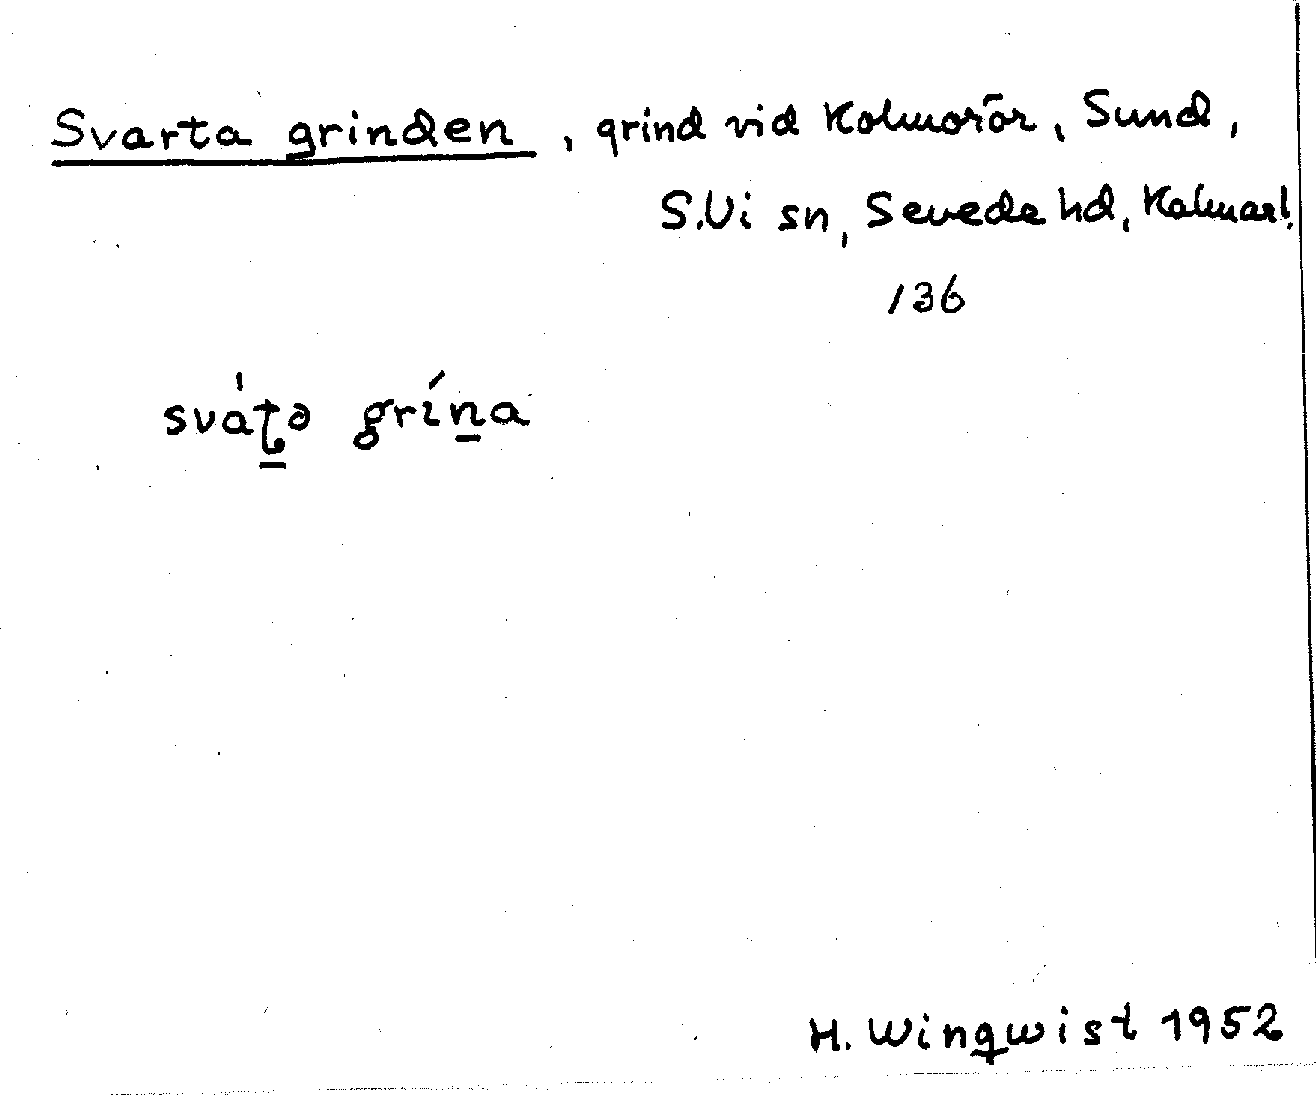 Svarta grinden, grind vid Kolmorör, Sund,
S.Vi sn, Sevede hd, Kalmarl.
136
sváʈə grína
H. Winqwist 1952